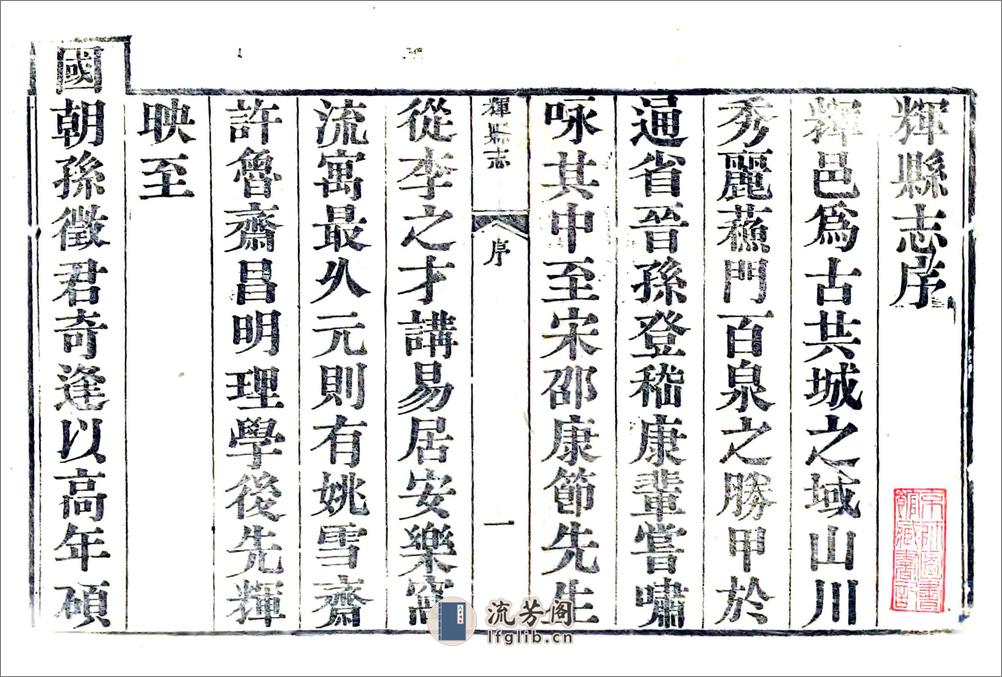 輝縣志序
輝邑爲古共城之域山川
秀麗蘇門百泉之勝甲於
通省晉孫登嵇康輩嘗嘯
咏其中至宋邵康節先生
輝縣志 序 一
從李之才講易居安樂窩
流寓最久元則有姚雪齋
許魯齋昌明理學後先輝
映至
國朝孫徵君奇逢以高年碩
流芳阁
lfglib.cn